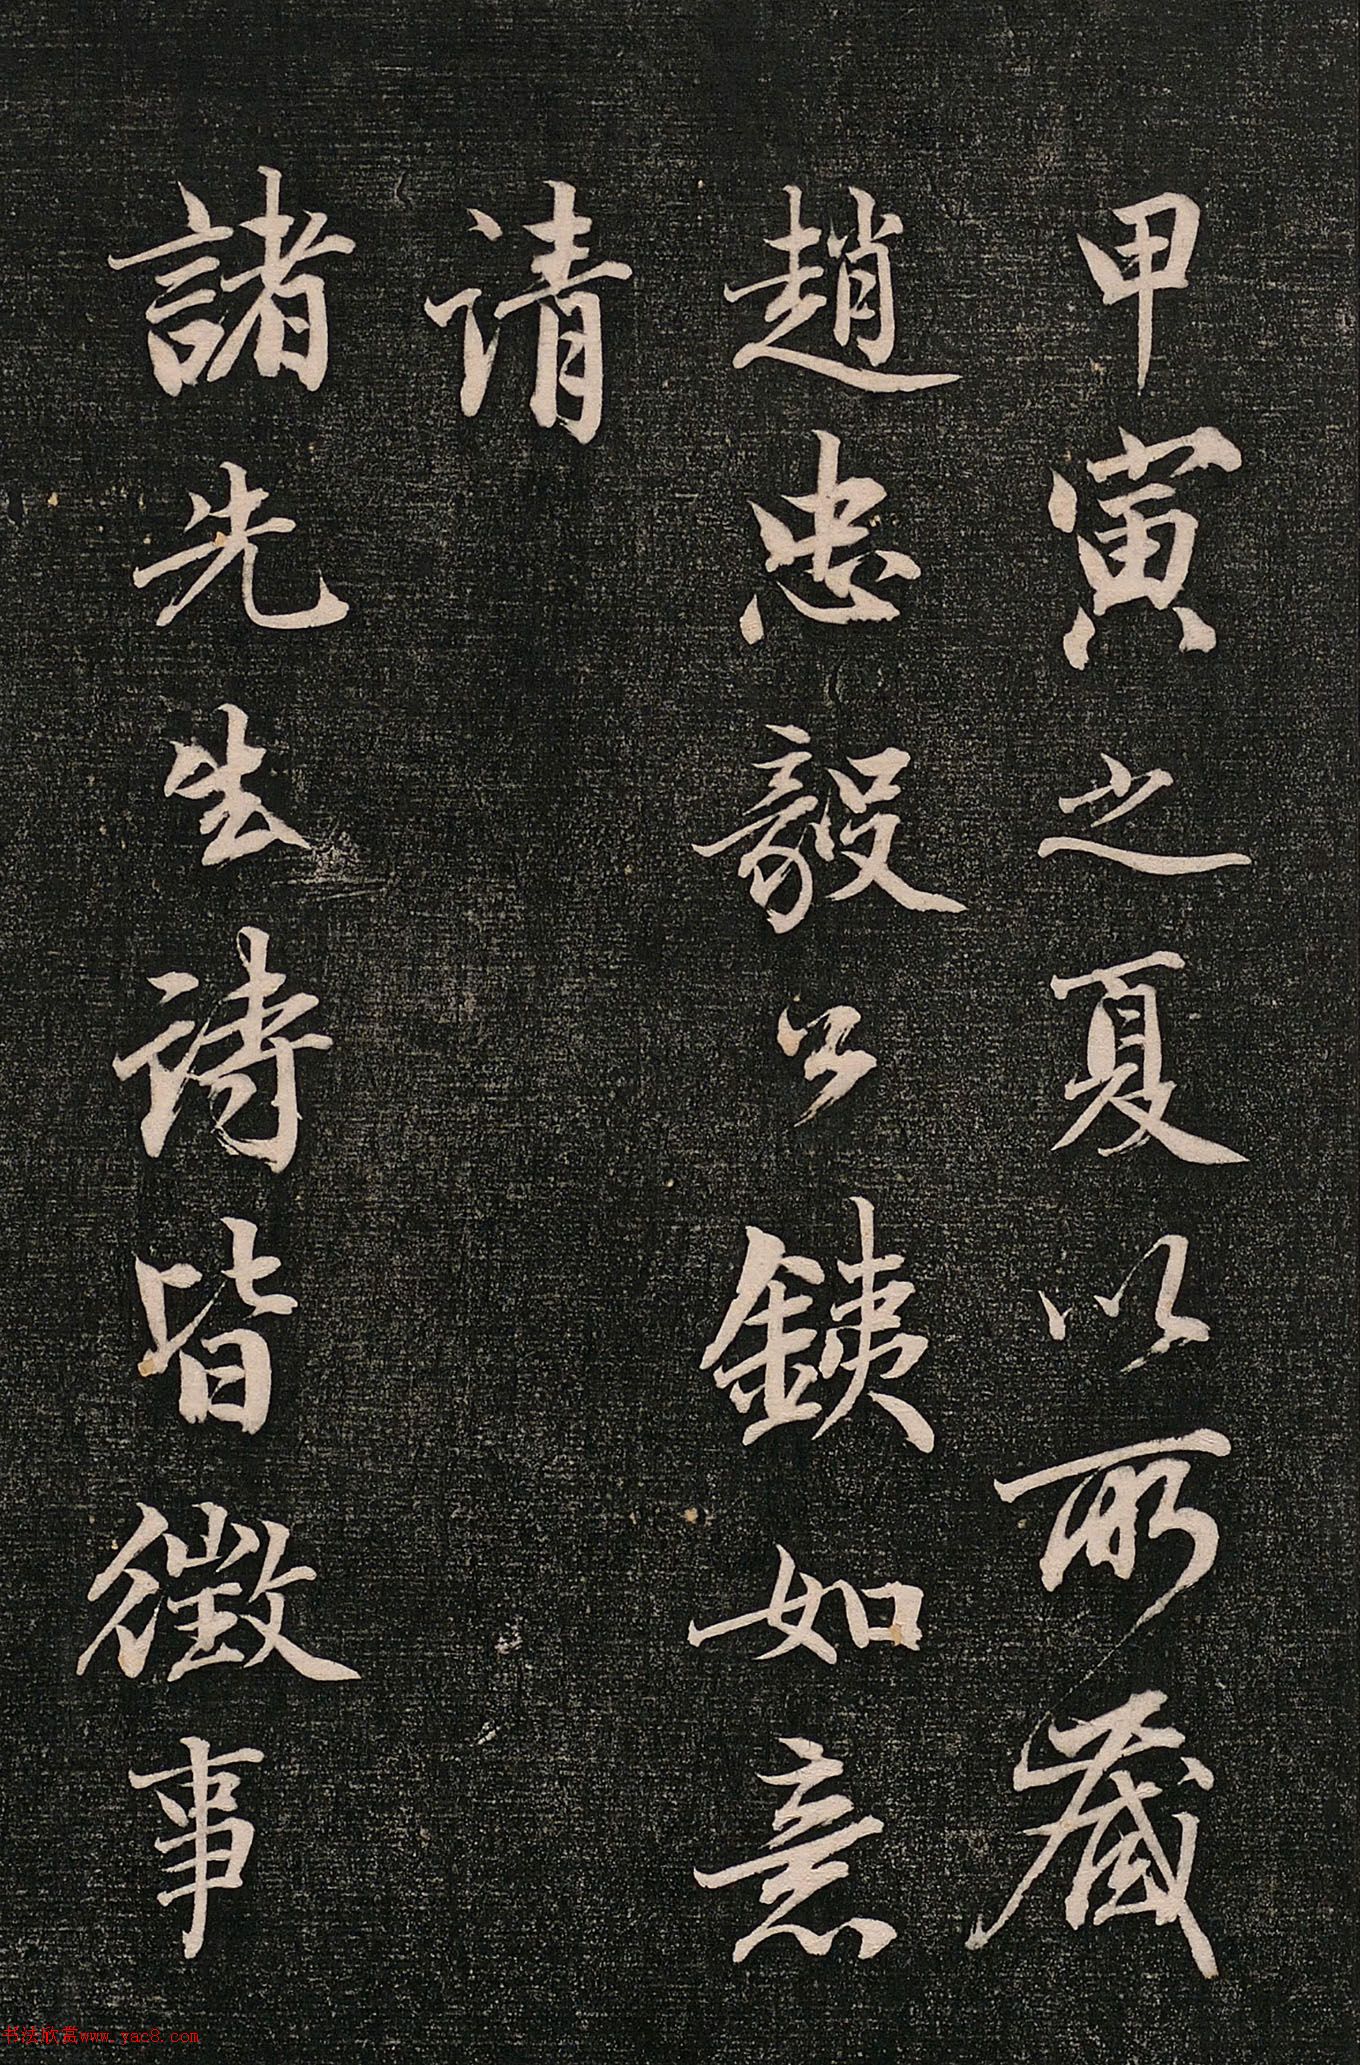 甲寅之夏以所藏
趙忠毅公銕如意
请
諸先生詩皆徵事
书法欣赏www.yac8.com